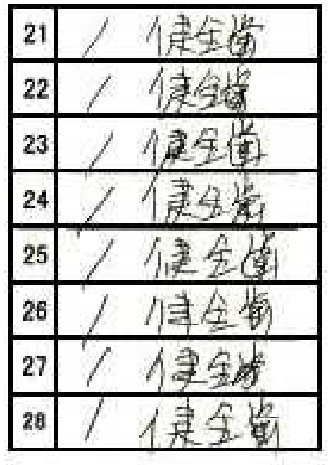 21 / 健全歯
22 / 健全歯
23 / 健全歯
24 / 健全歯
25 / 健全歯
26 / 健全歯
27 / 健全歯
28 / 健全歯